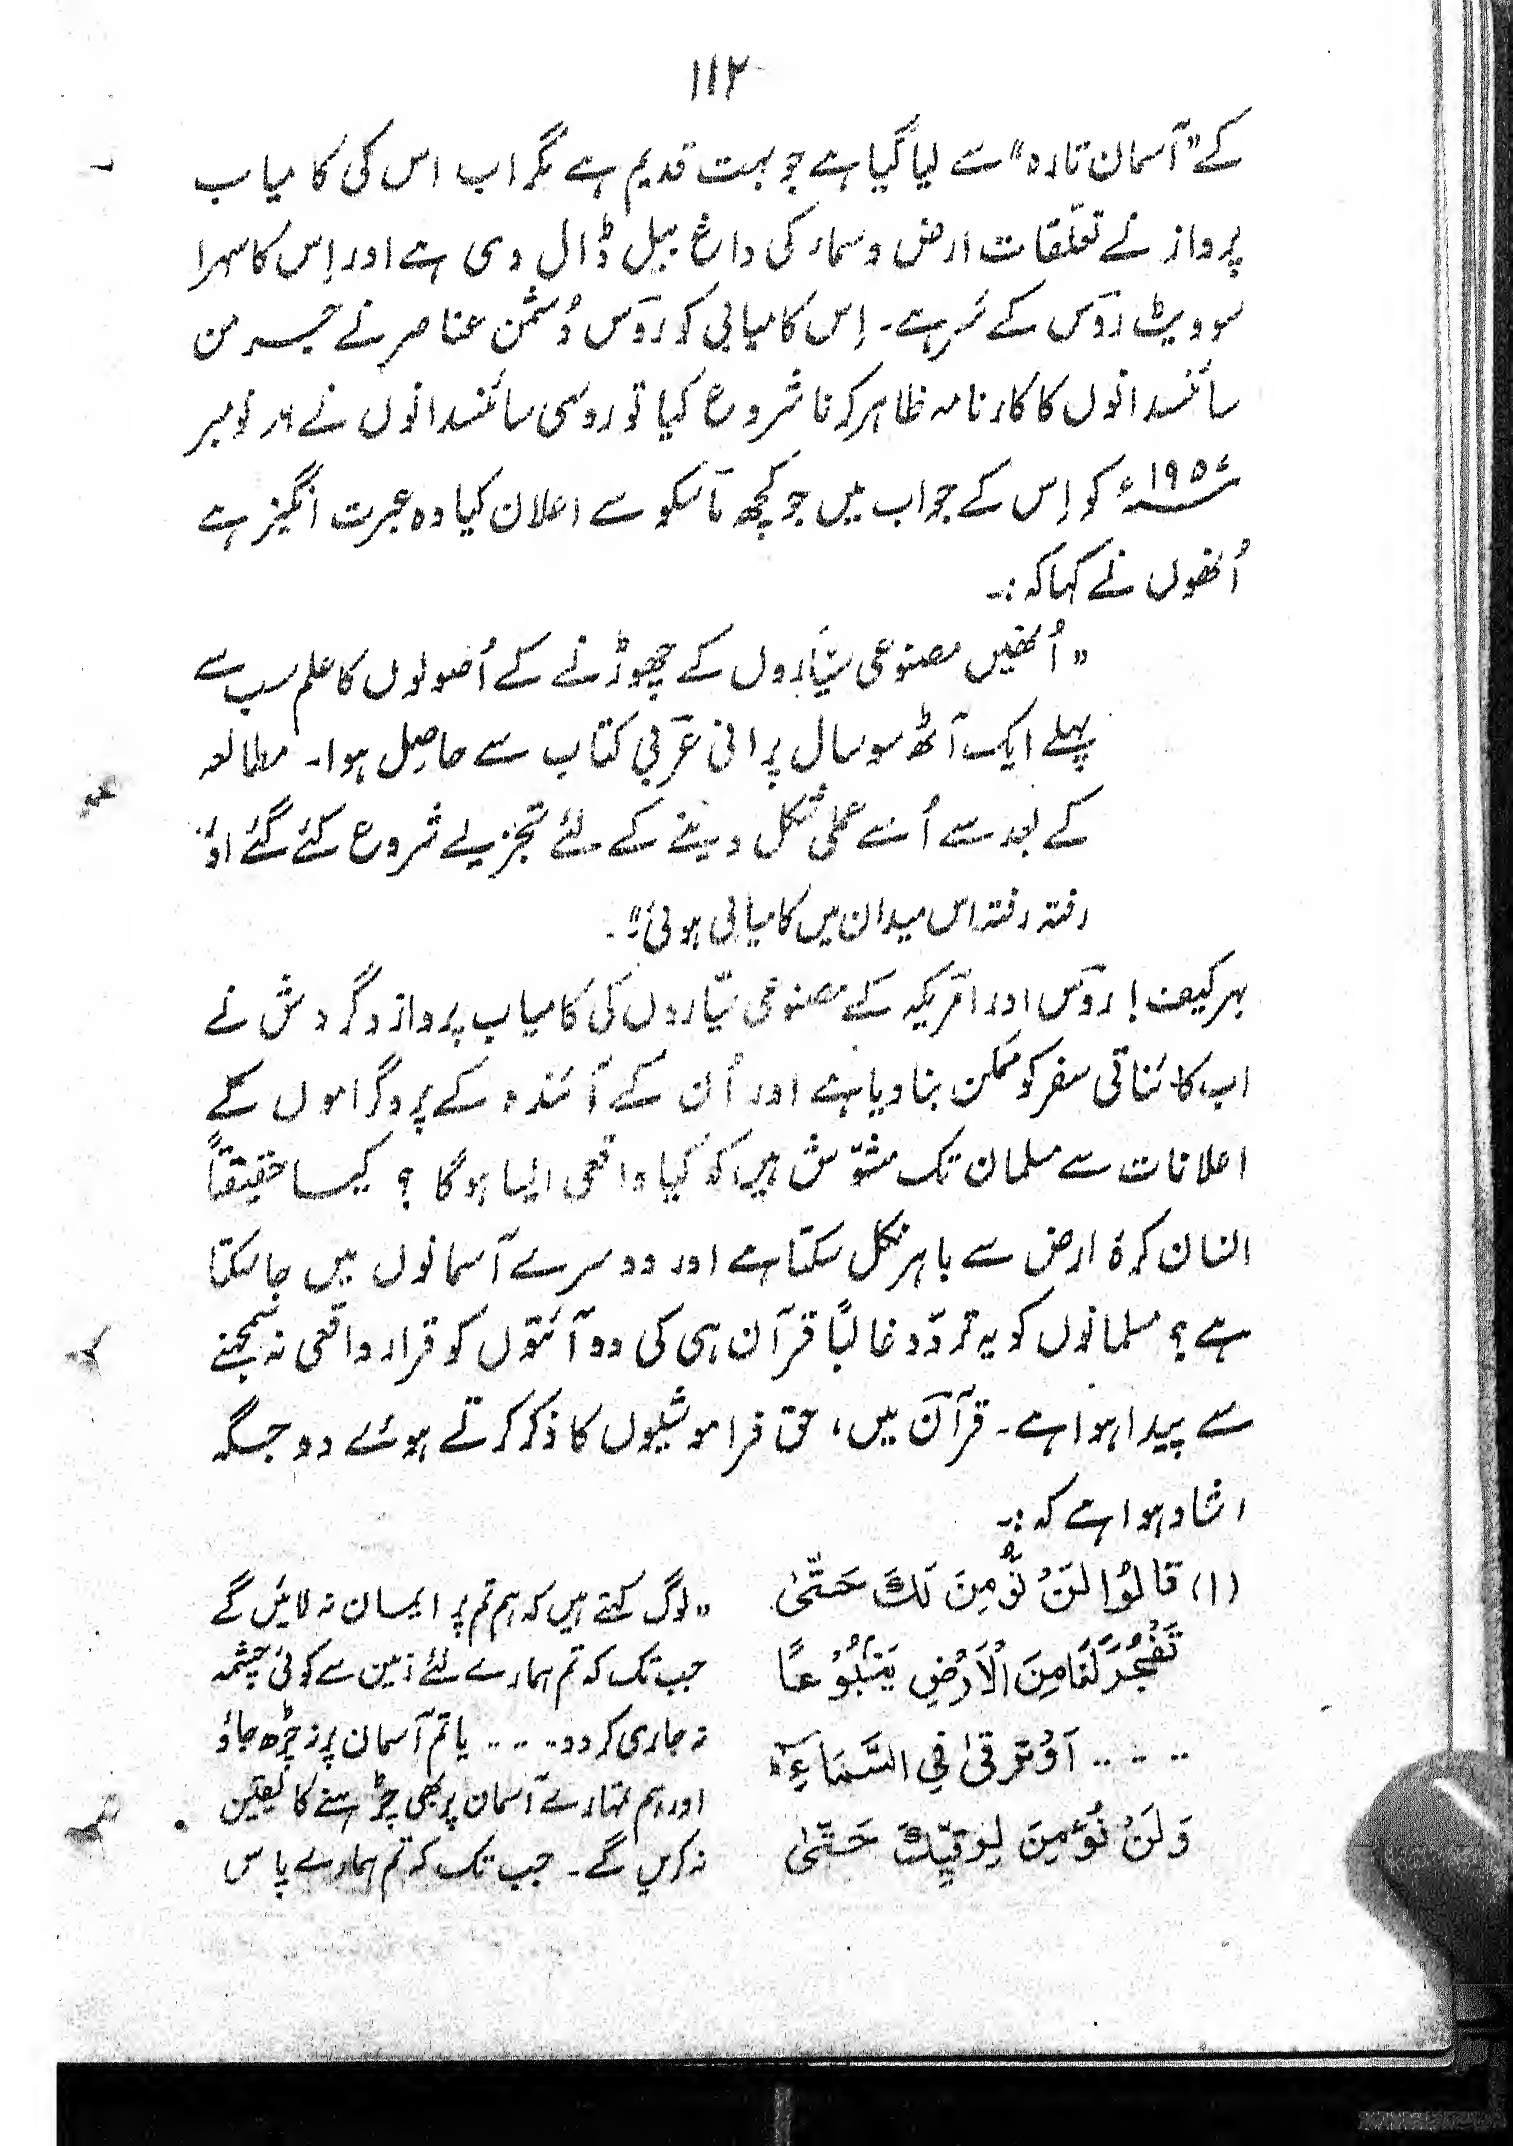 ۱۱۲
کے "آسمان تارہ" سے لیا گیا ہے جو بہت قدیم ہے مگر اب اس کی کامیاب
پرواز نے تعلّقات ارض و سماء کی داغ بیل ڈال دی ہے اور اِس کا سہرا
سوویٹ روس کے سَر ہے۔ اِس کامیابی کو روس دُشمن عناصر نے جرمن
سائنسدانوں کا کارنامہ ظاہر کرنا شروع کیا تو روسی سائنسدانوں نے نومبر
کو اِس کے جواب میں جو کچھ ماسکو سے اعلان کیا وہ عبرت انگیز ہے
اُنھوں نے کہا کہ:۔
"اُنھیں مصنوعی سیّاروں کے چھوڑنے کے اُصولوں کا علم سب سے
پہلے ایک آٹھ سو سال پرانی عربی کتاب سے حاصِل ہوا۔ مطالعہ
کے بعد سے اُسے عملی شکل دینے کے لئے تجزیے شروع کئے گئے اور
رفتہ رفتہ اس میدان میں کامیابی ہوئی"۔
بہر کیف! روس اور امریکہ کے مصنوعی سیّاروں کی کامیاب پرواز و گردش نے
اب کائناتی سفر کو ممکن بنا دیا ہے اور اُن کے آئندہ کے پروگراموں کے
اعلانات سے مسلمان تک مشوّش ہیں کہ کیا واقعی ایسا ہوگا؟ کیا حقیقتاً
انسان کرۂ ارض سے باہر نکل سکتا ہے اور دوسرے آسمانوں میں جا سکتا
ہے؟ مسلمانوں کو یہ تردّد غالباً قرآن ہی کی دو آئتوں کو قرار واقعی نہ سمجھنے
سے پیدا ہوا ہے۔ قرآن میں، حق فراموشیوں کا ذکر کرتے ہوئے دو جگہ
اشاد ہوا ہے کہ:۔
(۱) قَالُوْا لَنْ نُّؤْمِنَ لَكَ حَتّٰى
تَفْجُرَ لَنَا مِنَ الْاَرْضِ يَنْۢبُوْعًا
.... اَوْ تَرْقٰى فِي السَّمَآءِ ؕ
وَلَنْ نُّؤْمِنَ لِرُقِيِّكَ حَتّٰى
"لوگ کہتے ہیں کہ ہم تم پر ایمان نہ لائیں گے
جب تک کہ تم ہمارے لئے زمین سے کوئی چشمہ
نہ جاری کر دو.... یا تم آسمان پر نہ چڑھ جاؤ
اور ہم تمہارے آسمان پر بھی چڑہنے کا یقین
نہ کریں گے۔ جب تک کہ تم ہمارے پاس